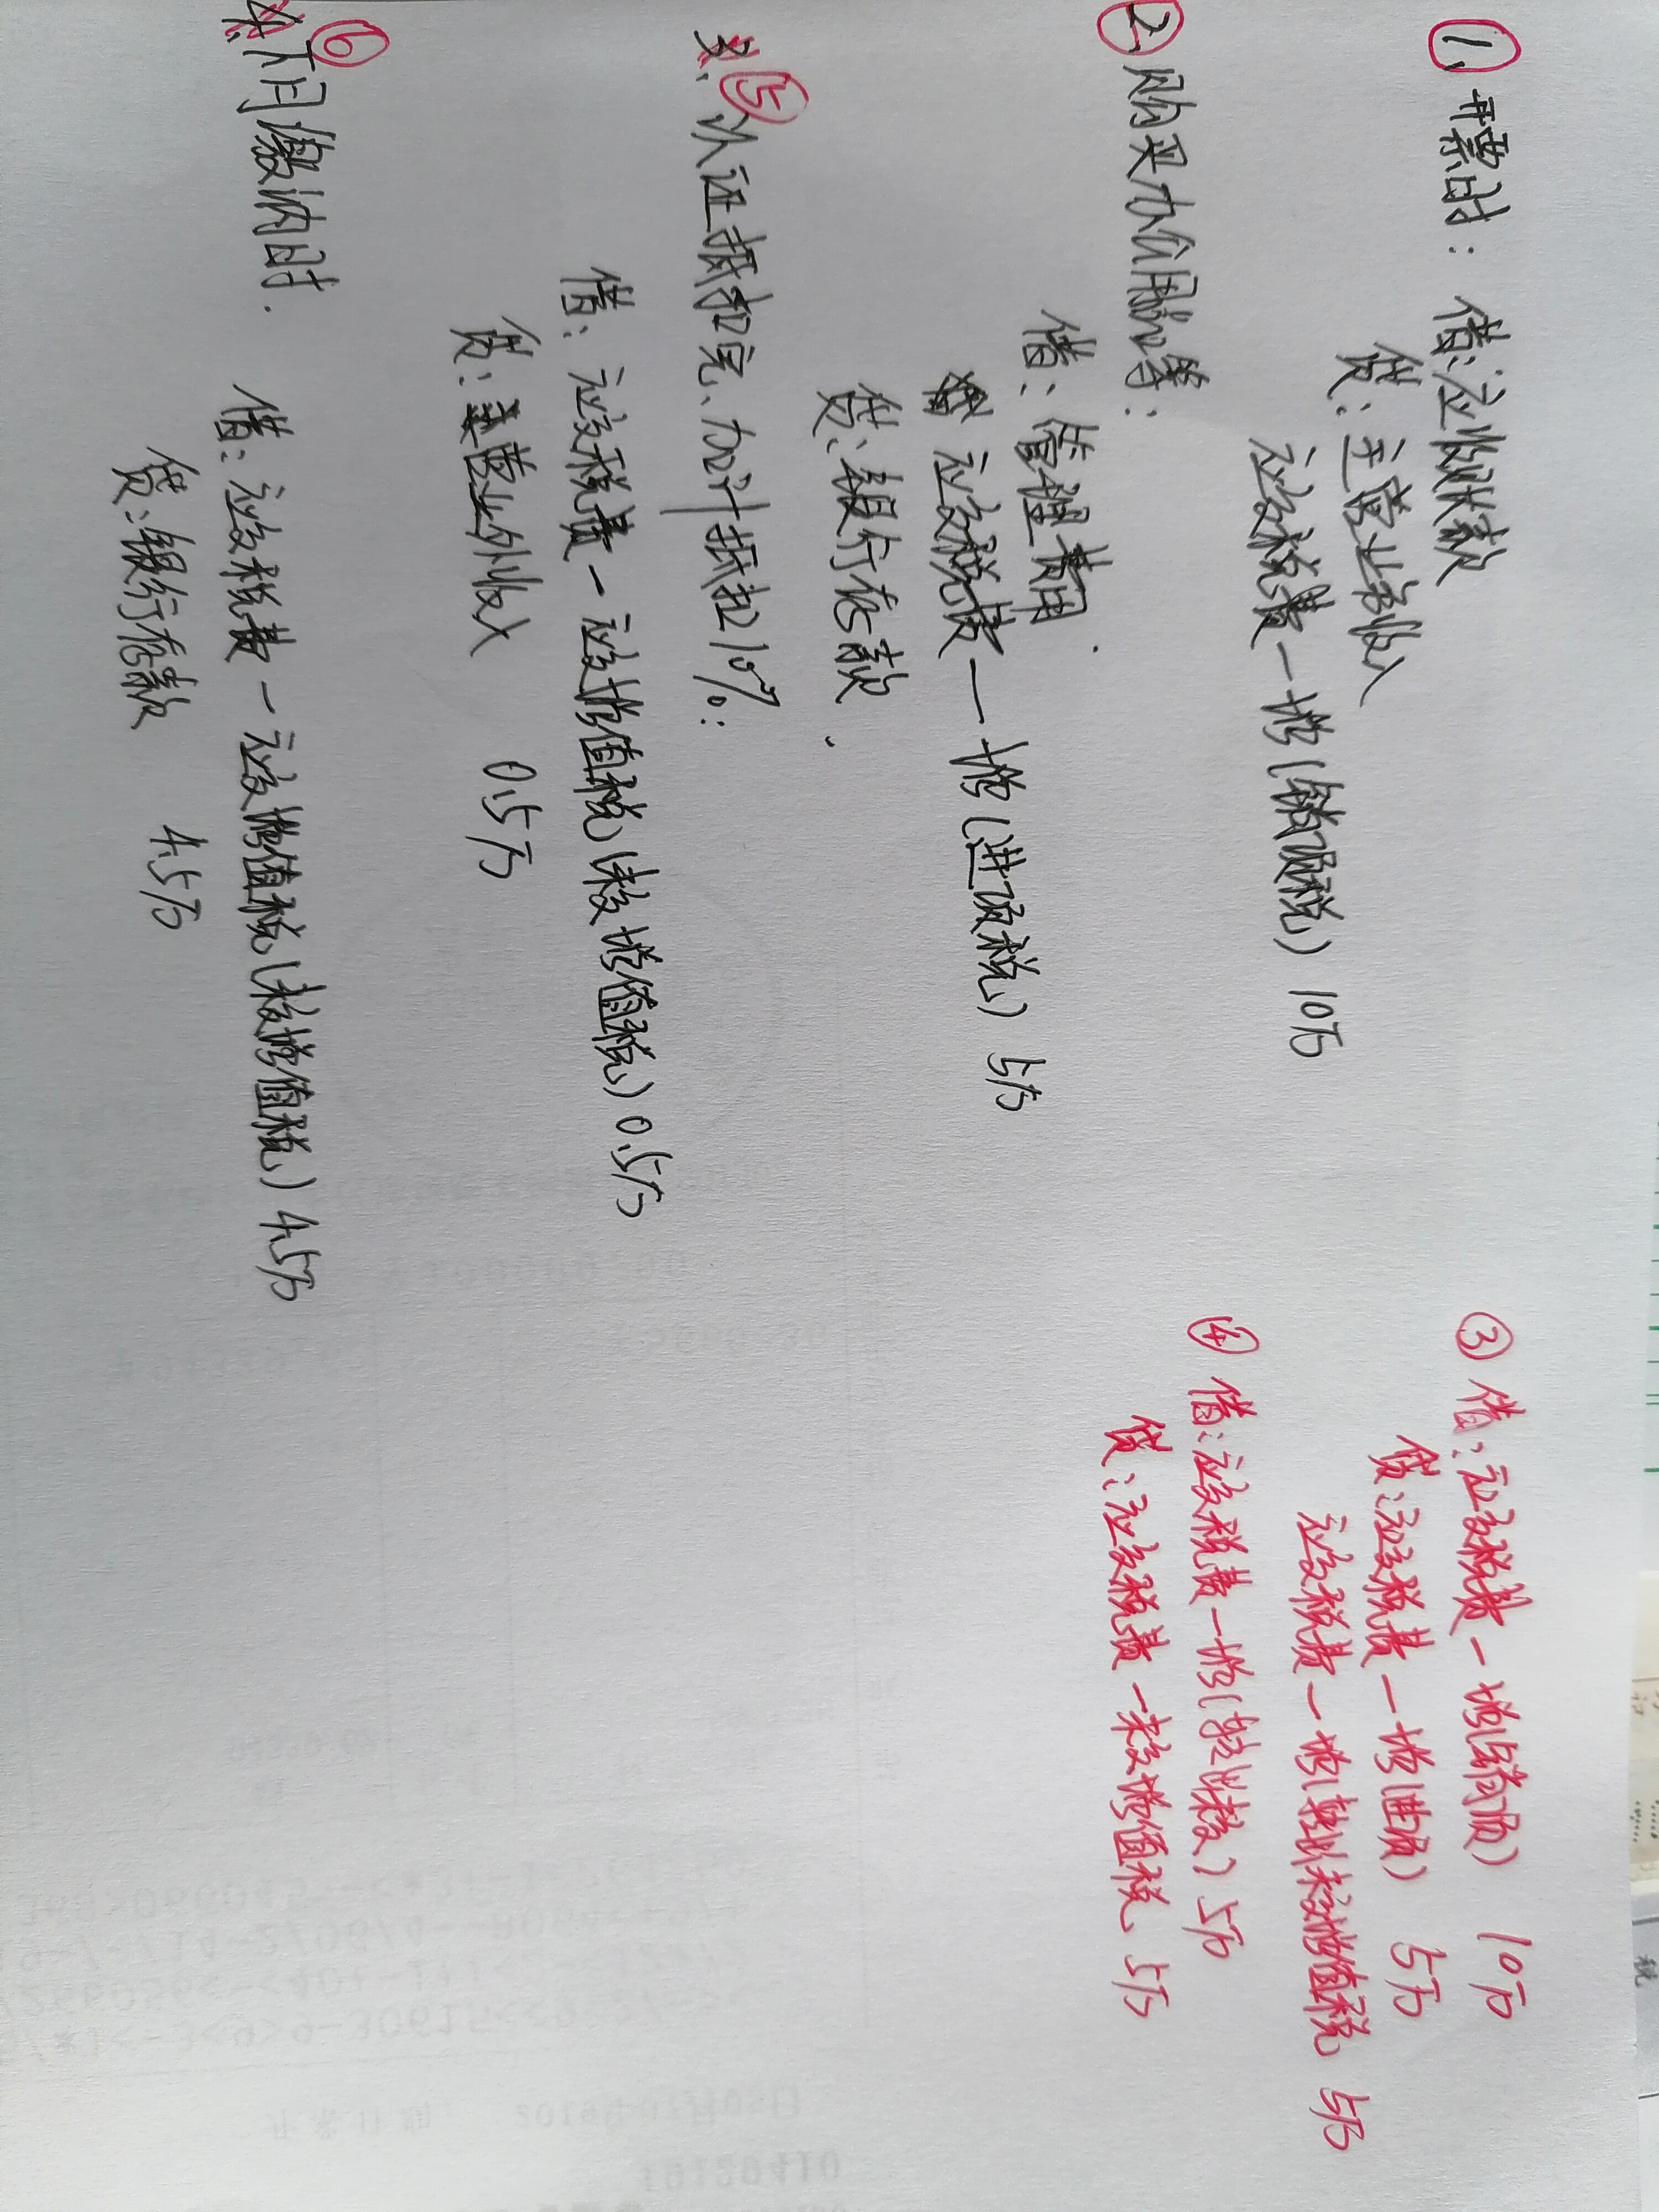 ①、开票时：借：应收账款
贷：主营业务收入
应交税费—增（销项税）10万
②、购买办公用品等：
借：管理费用
应交税费—增（进项税）5万
贷：银行存款
⑤、认证抵扣完、加计抵扣10%：
借：应交税费—应交增值税（未交增值税）0.5万
贷：营业外收入 0.5万
⑥ 下月缴纳时.
借：应交税费—应交增值税（未交增值税）4.5万
贷：银行存款 4.5万
③ 借：应交税费—增（销项）10万
贷：应交税费—增（进项）5万
应交税费—增（转出未交增值税 5万
④ 借：应交税费—增（转出未交）5万
贷：应交税费—未交增值税 5万